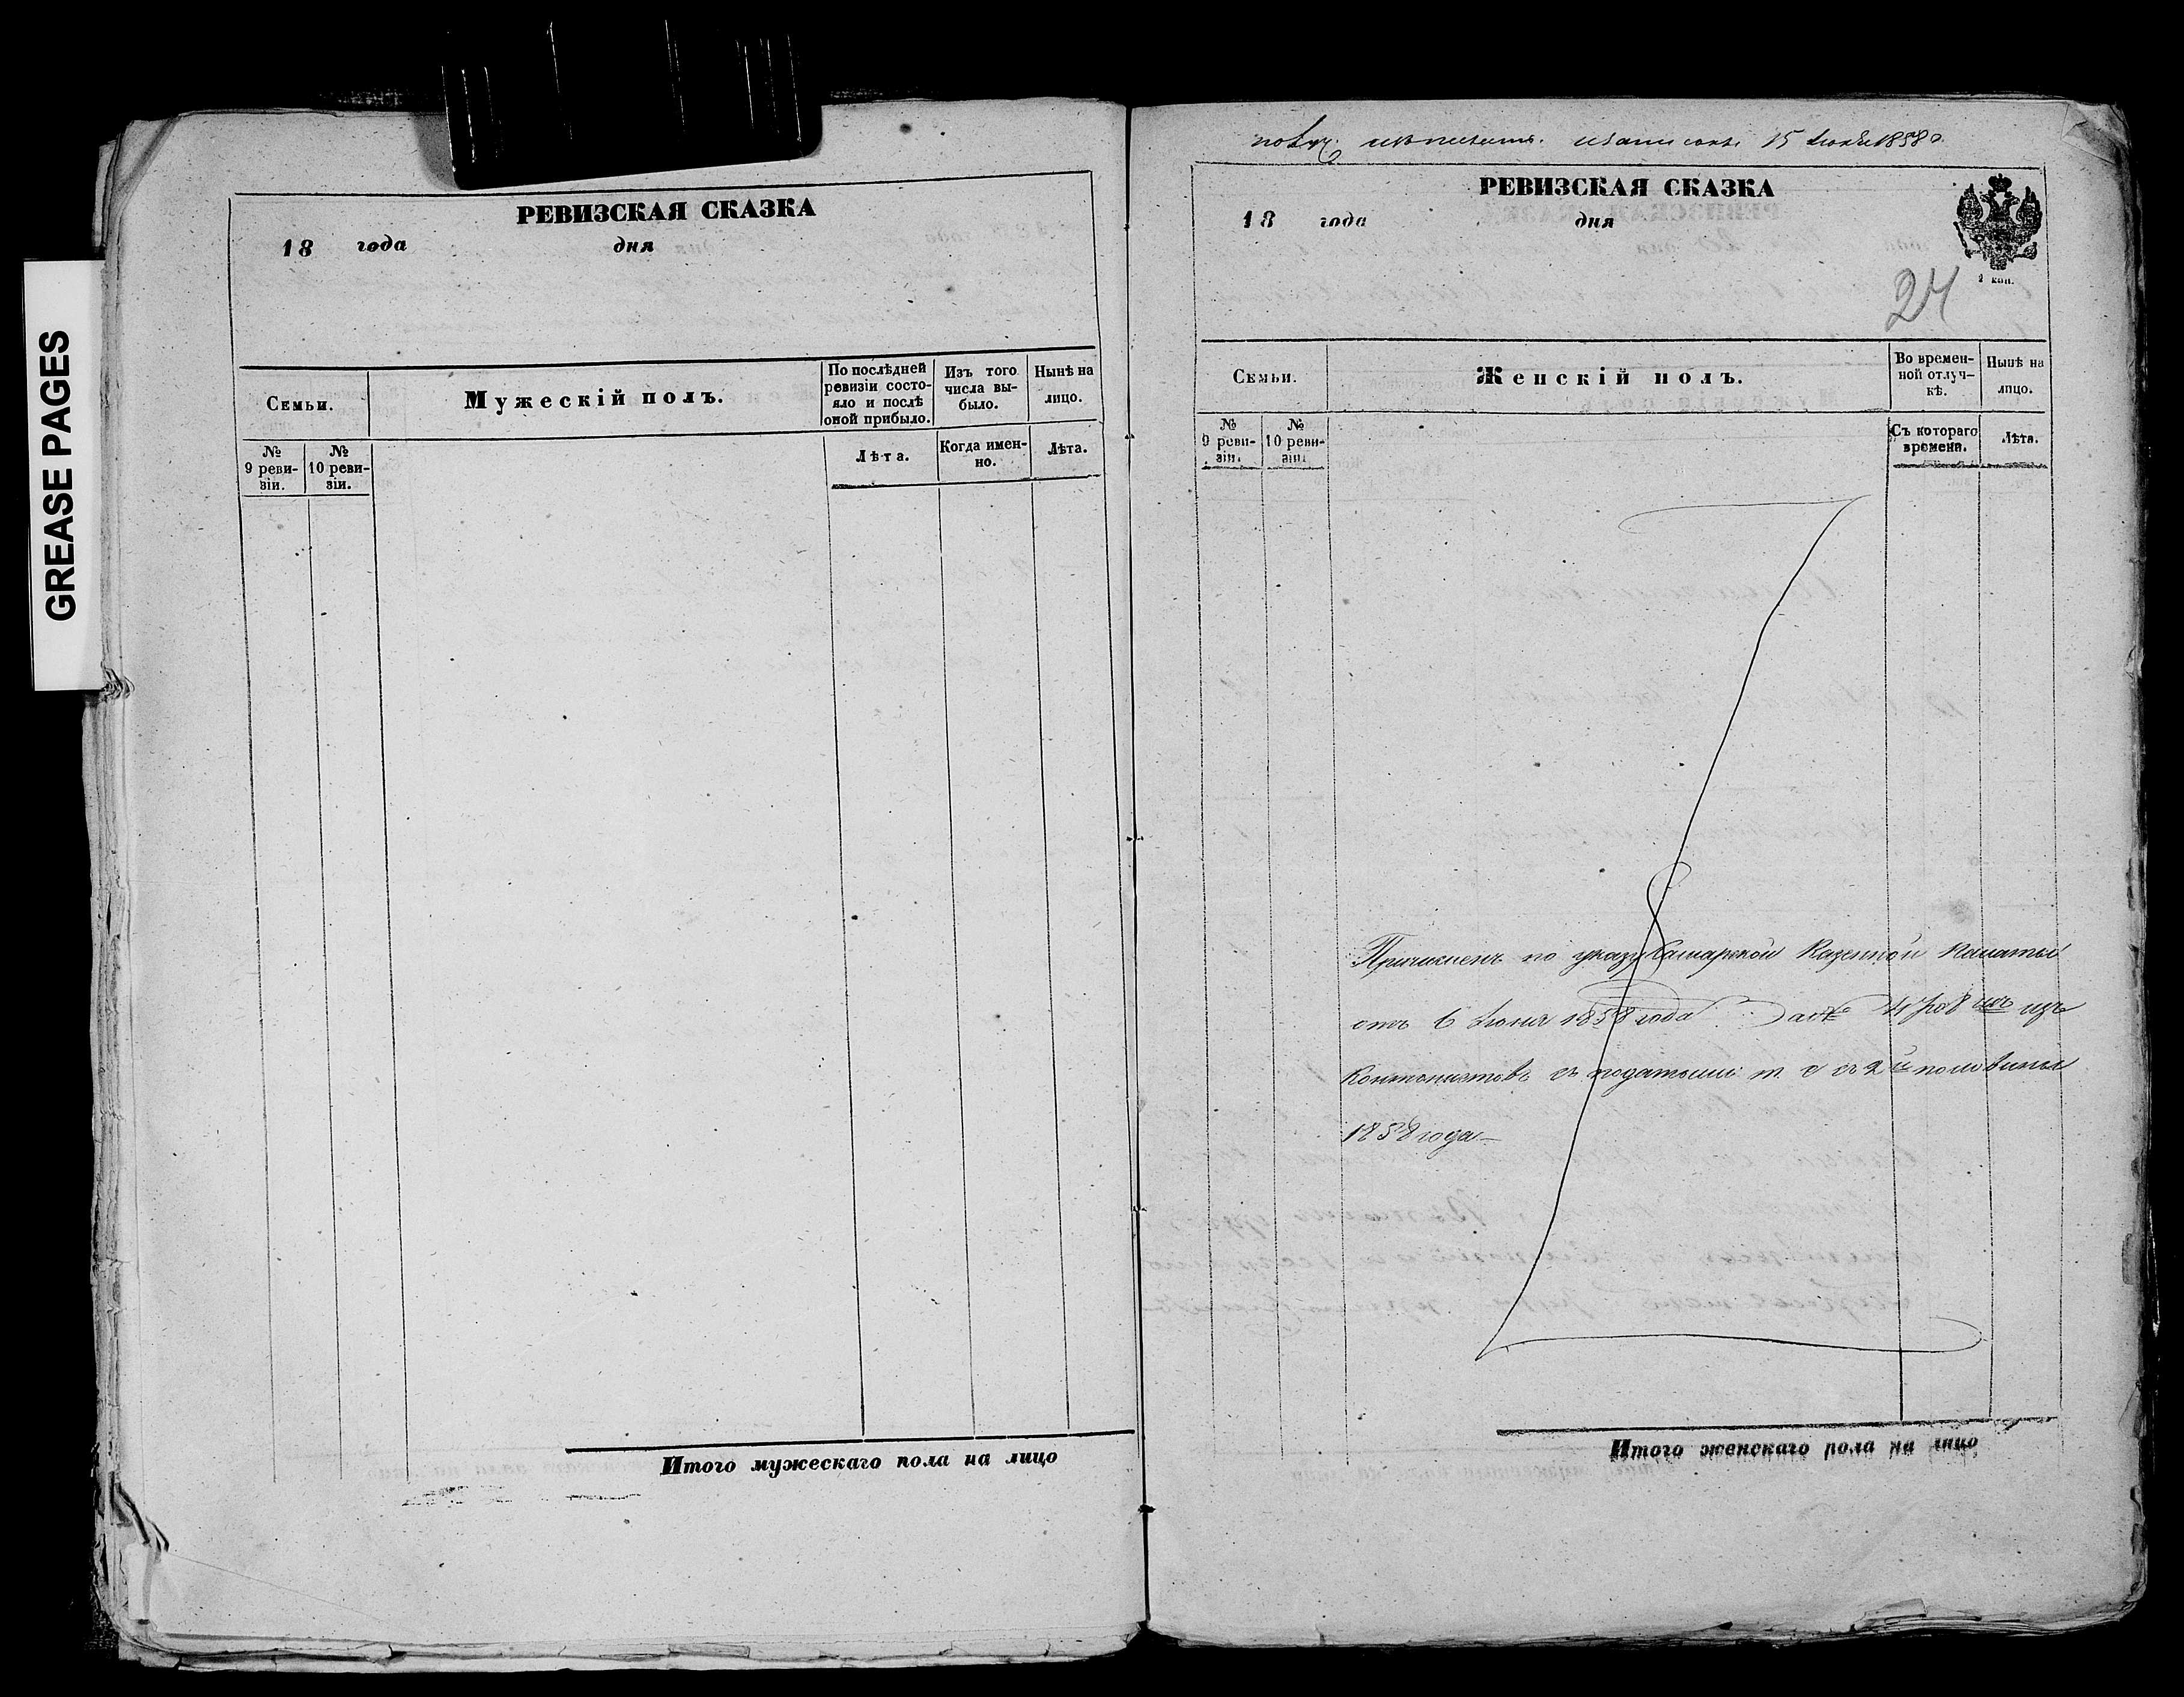 GREASE PAGES
РЕВИЗСКАЯ СКАЗКА
18 года дня
Семьи.
Мужескій полъ.
По послѣдней ревизіи состояло и послѣ оной прибыло.
Изъ того числа выбыло.
Нынѣ на лицо.
№ 9 ревизіи.
№ 10 ревизіи.
Лѣта.
Когда именно.
Лѣта.
Итого мужескаго пола на лицо
15 1858
РЕВИЗСКАЯ СКАЗКА
18 года дня
2 коп.
24
Семьи.
Женскій полъ.
Во временной отлучкѣ.
Нынѣ на лицо.
№ 9 ревизіи.
№ 10 ревизіи.
Съ котораго времени.
Лѣта.
Причисленъ по указу Самарской Казенной Палаты
отъ 6 Іюня 1858 года изъ
Кантонистовъ съ податьми т с съ 2й половины
1858 года
Итого женскаго пола на лицо